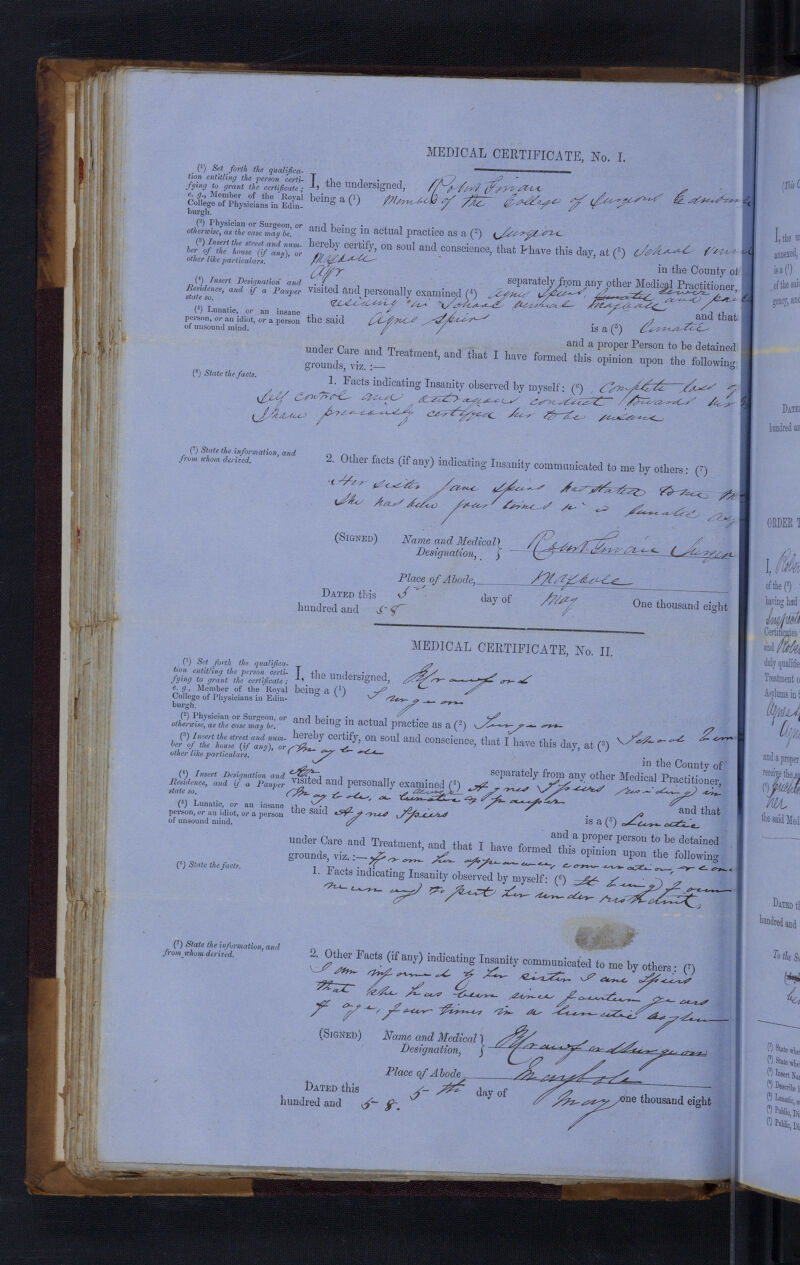 MEDICAL CERTIFICATE, No. I.
(1) Set forth the qualifica-
tion entitling the person certi-
fying to grant the certificate;
e. g., Member of the Royal
College of Physicians in Edin-
burgh.
I, the undersigned,
being a (1) Member of the College of Surgeons Edinburgh
(2) Physician or Surgeon, or
otherwise, as the case may be.
and being in actual practice as a (2) Surgeon
(3) Insert the street and num-
ber of the house (if any), or
other like particulars.
hereby certify, on soul and conscience, that I have this day, at (3) School Vennel
Maybole
in the County of
Ayr separately from any other Medical Practitioner,
(4) Insert Designation and
Residence, and if a Pauper
state so.
visited and personally examined (4) Agnes Spiers
residing in School Vennel Maybole and that
(5) Lunatic, or an insane
person, or an idiot, or a person
of unsound mind.
the said Agnes Spiers is a (5) Lunatic
and a proper Person to be detained
under Care and Treatment, and that I have formed this opinion upon the following
grounds, viz. :—
(6) State the facts.
1. Facts indicating Insanity observed by myself: (6) Complete loss of
self control and outrageous conduct towards her
I have previously certifyed her to be insane
(7) State the information, and
from whom derived.
2. Other facts (if any) indicating Insanity communicated to me by others: (7)
Her sister Jane Spiers has stated to me
She has been four times in a Lunatic
(SIGNED) Name and Medical
Designation, Surgeon
Place of Abode, Maybole
DATED this 5th day of May One thousand eight
hundred and 58
MEDICAL CERTIFICATE, No. II.
(1) Set forth the qualifica-
tion entitling the person certi-
fying to grant the certificate;
e. g., Member of the Royal
College of Physicians in Edin-
burgh.
I, the undersigned, H Crawford
being a (1) Surgeon
(2) Physician or Surgeon, or
otherwise, as the case may be.
and being in actual practice as a (2) Surgeon
(3) Insert the street and num-
ber of the house (if any), or
other like particulars.
hereby certify, on soul and conscience, that I have this day, at (3) School
Maybole
in the County of
Ayr separately from any other Medical Practitioner,
(4) Insert Designation and
Residence, and if a Pauper
state so.
visited and personally examined (4) Agnes Spiers residing in
Maybole, a pauper and that
(5) Lunatic, or an insane
person, or an idiot, or a person
of unsound mind.
the said Agnes Spiers is a (5) Lunatic
and a proper person to be detained
under Care and Treatment, and that I have formed this opinion upon the following
grounds, viz. :— From her appearance, conversation,
(6) State the facts.
1. Facts indicating Insanity observed by myself: (6) It being found
necessary to put her under restraint.
(7) State the information, and
from whom derived.
2. Other Facts (if any) indicating Insanity communicated to me by others: (7)
I am informed by her sister Jane Spiers
that she has been since fourteen years
of age, four times in a lunatic asylum
(SIGNED) Name and Medical
Designation, H Crawford Surgeon
Place of Abode Maybole
DATED this 5th day of May one thousand eight
hundred and 58.